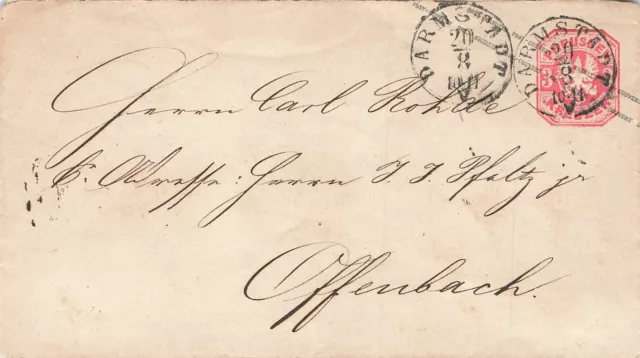 DARMSTADT
20
8
DARMSTADT
20
8
3
Herrn Carl Rohde
p. Adresse: Herrn J. J. Pfaltz jr
Offenbach.